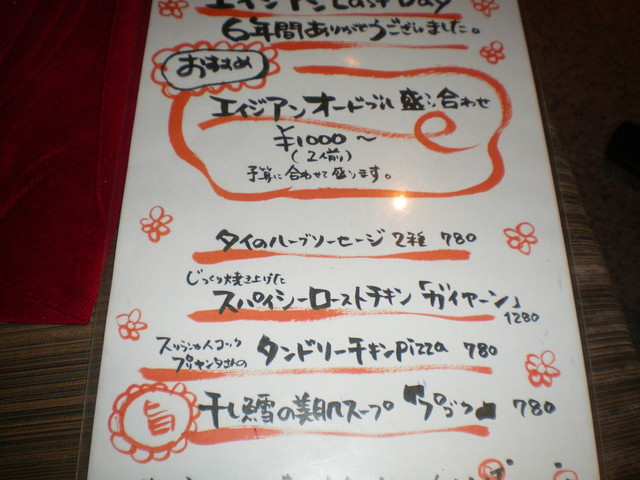 エイジアン Last Day
6年間ありがとうございました。
おすすめ
エイジアンオードブル盛り合わせ
¥1000～
(2人前)
予算に合わせて盛ります。
タイのハーブソーセージ 2種 780
じっくり焼き上げた
スパイシーローストチキン「ガイヤーン」
1280
スリランカ人コック
プリヤンタさんの
タンドリーチキンpizza 780
旨
干し鱈の美肌スープ「プゴク」 780